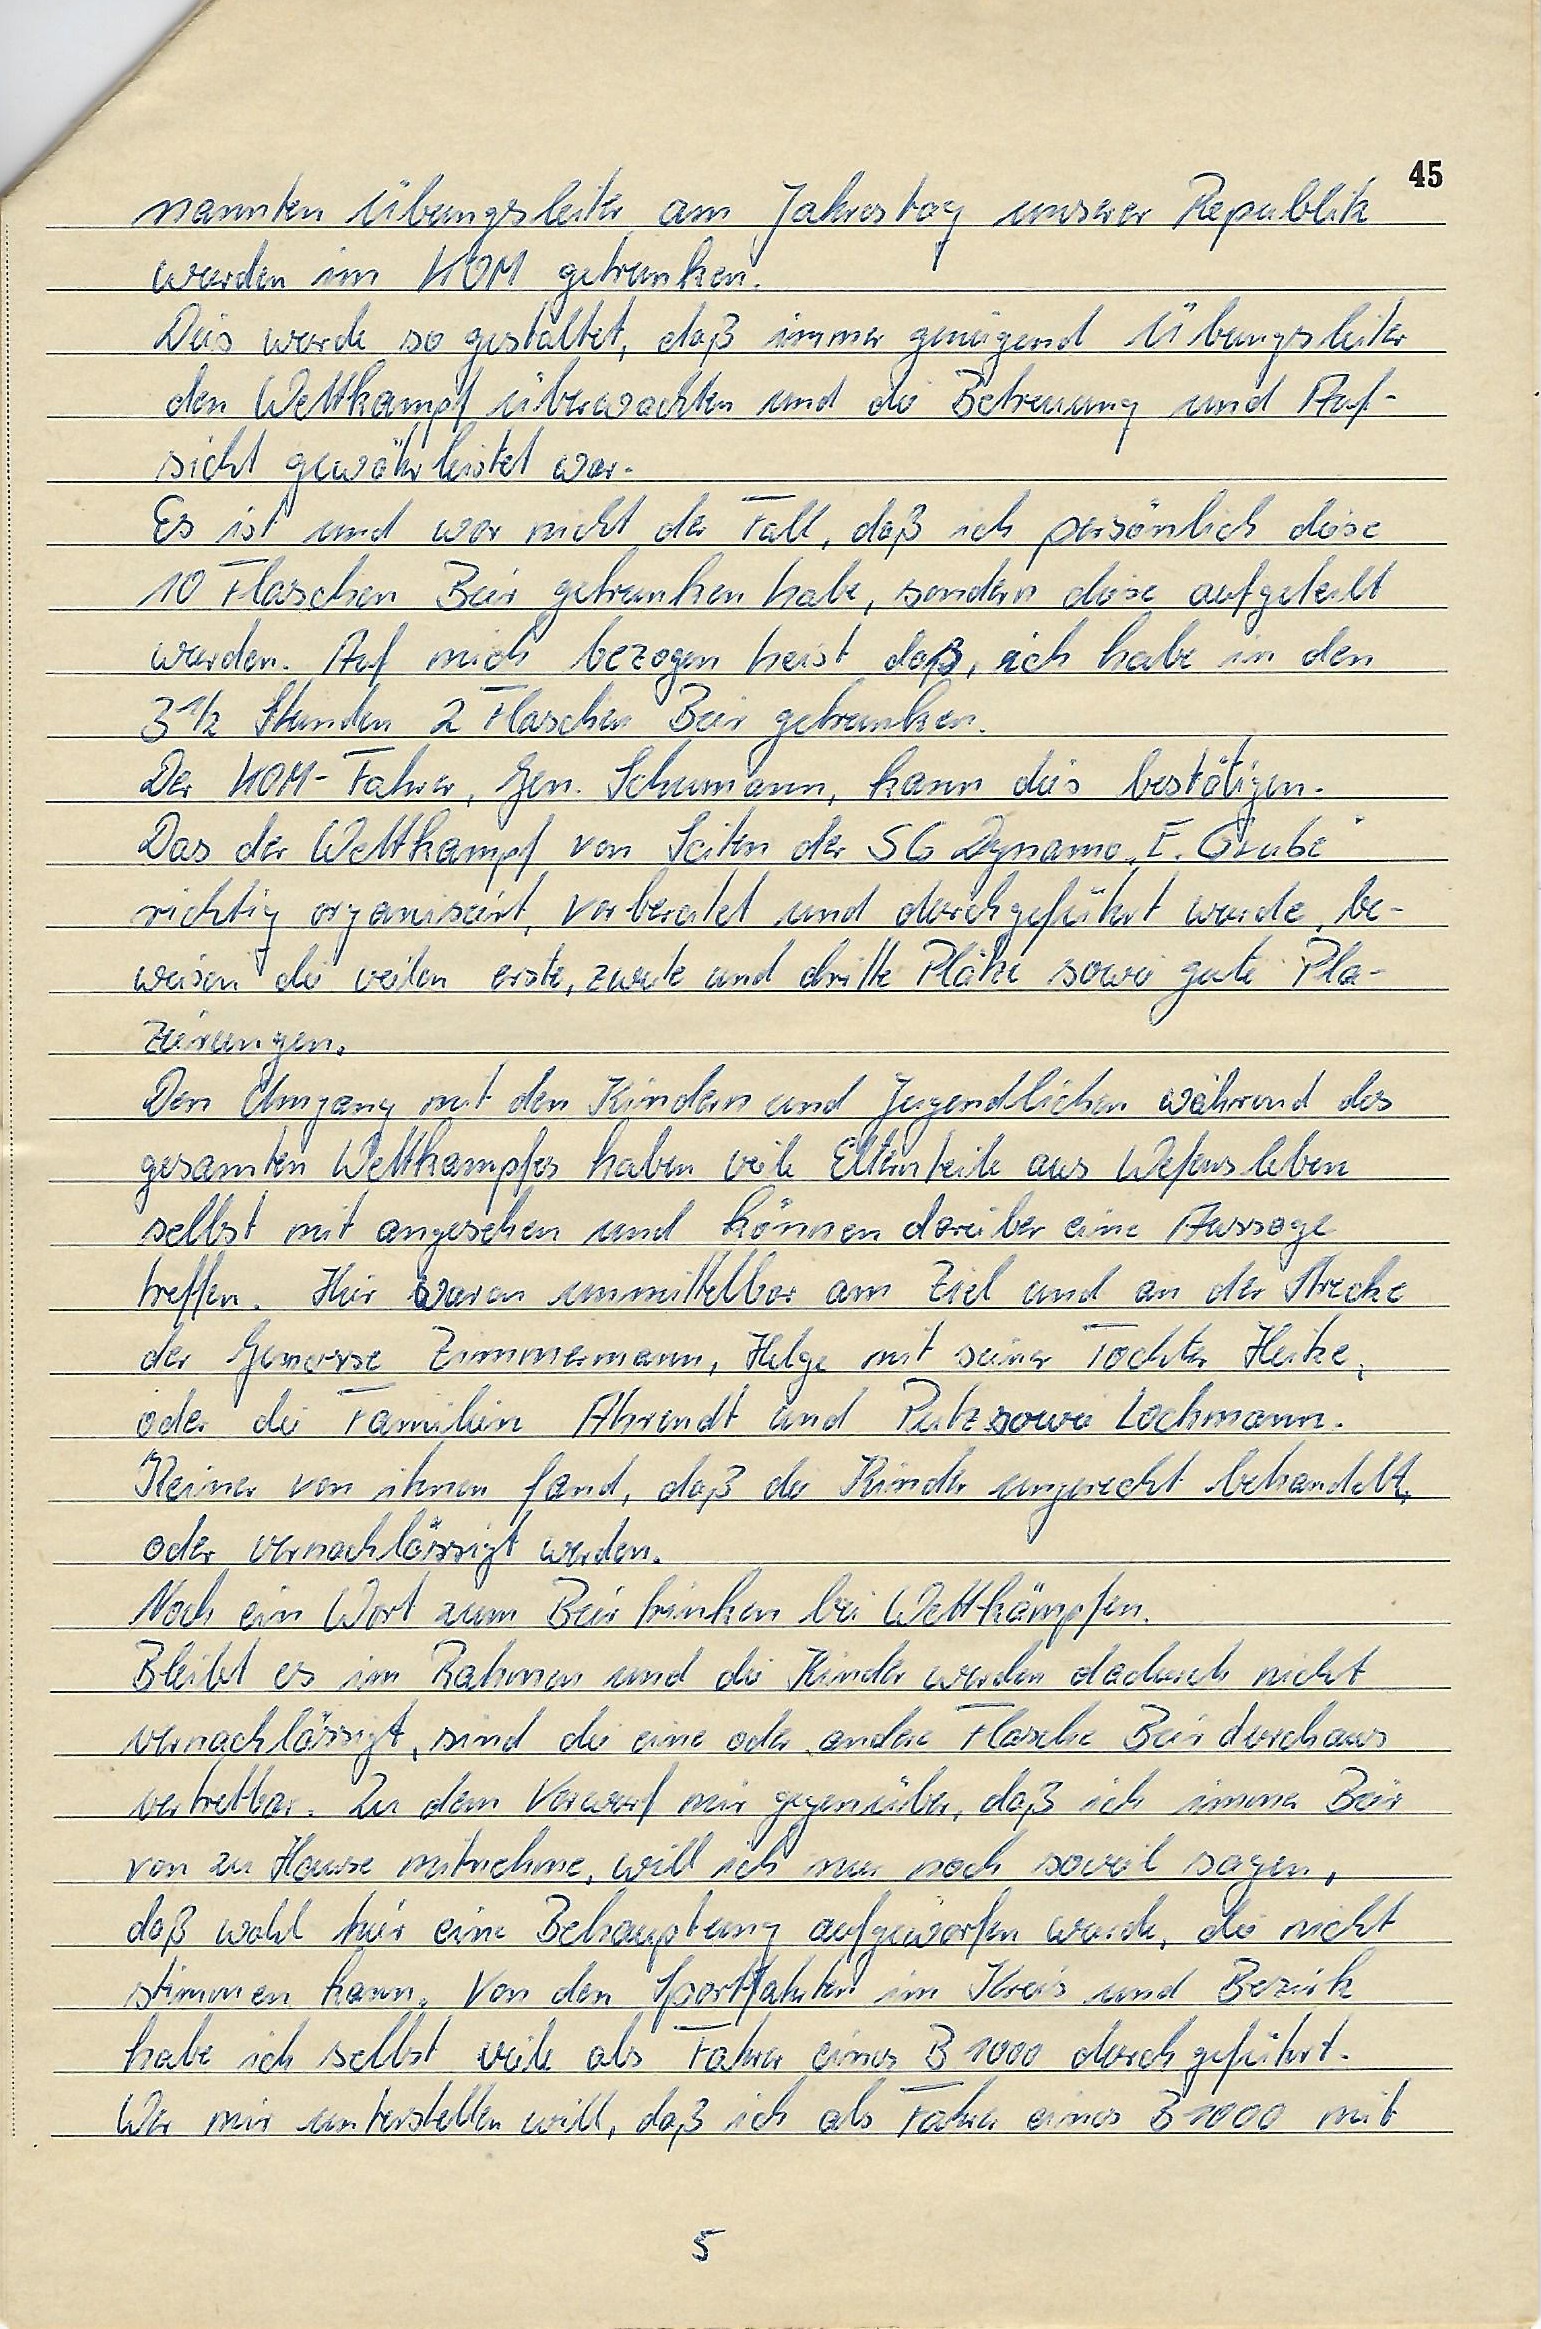 45
nannten Übungsleiter am Jahrestag unserer Republik
wurden im KOM getrunken.
Deis wurde so gestaltet, daß immer genügend Übungsleiter
den Wettkampf überwachten und die Betreuung und Auf-
sicht gewährleistet war.
Es ist und war nicht der Fall, daß ich persönlich diese
10 Flaschen Beir getrunken habe, sondern diese aufgeteilt
wurden. Auf mich bezogen heist daß, ich habe in den
3 1/2 Stunden 2 Flaschen Beir getrunken.
Der KOM-Fahrer, Gen. Schumann, kann dies bestätigen.
Das der Wettkampf von Seiten der SG Dynamo „E. Grube“
richtig organiseirt, vorbereitet und durchgeführt wurde, be-
weisen die veilen erste, zweite und dritte Plätze sowie gute Pla-
zeirungen.
Den Umgang mit den Kindern und Jugendlichen während des
gesamten Wettkampfes haben veile Elternteile aus Wefensleben
selbst mit angesehen und können darüber eine Aussage
treffen. Hier waren unmittelbar am Ziel und an der Strecke
der Genosse Zimmermann, Helge mit seiner Tochter Heike,
oder die Familien Ahrendt und Putz sowie Lochmann.
Keiner von ihnen fand, daß die Kinder ungerecht behandelt,
oder vernachlässigt werden.
Noch ein Wort zum Beir trinken bei Wettkämpfen.
Bleibt es im Rahmen und die Kinder werden dadurch nicht
vernachlässigt, sind die eine oder andere Flasche Beir durchaus
vertretbar. Zu dem Vorwurf mir gegenüber, daß ich immer Beir
von zu Hause mitnehme, will ich nur noch soveil sagen,
daß wohl hier eine Behauptung aufgeworfen wurde, die nicht
stimmen kann. Von den Sportfahrten im Kreis und Bezirk
habe ich selbst veile als Fahrer eines B 1000 durchgeführt.
Wer mir unterstellen will, daß ich als Fahrer eines B 1000 mit
5